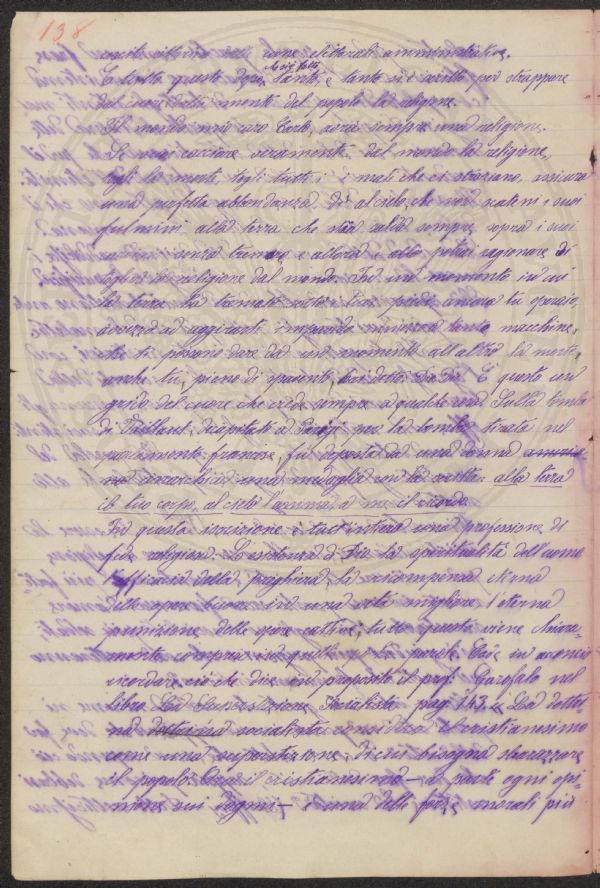 138
E tutto questo dopo tanti e tante si è scritto per strappare
dal cuore dalla mente del popolo la religione.
Il mondo mio caro avrà sempre una religione.
Se vuoi cacciare veramente dal mondo la religione,
togli la morte, togli tutti i mali che ci straziano, assicura
una perfetta abbondanza, di' al cielo, che non scateni i suoi
fulmini alla terra che stia salda sempre sopra i suoi
senza tremare e allora e allo potrai ragionare di
togliere la religione dal mondo. In un momento in cui
la terra ha tremato sotto i tuoi piedi, ancora tu operaio
avvezzo ad aggirarti impavido in mezzo a tante macchine,
che ti possono dare da un momento all'altro la morte,
anche tu, pieno di spavento, hai detto: Dio Dio. È questo un
grido del cuore che crede sempre a qualche cosa. Sulla tomba
di Vaillant, a Parigi per la bomba tirata nel
parlamento francese, fu deposta da una donna
anarchica una medaglia con la scritta: alla terra
il tuo corpo, al cielo l'anima, a me il ricordo.
In questa iscrizione è tutt'intera una professione di
fede religiosa. L'esistenza di Dio la spiritualità dell'anima
l'efficacia della preghiera la ricompensa eterna
delle opere buone in una vita migliore l'eterna
punizione delle opere cattive; tutto questo viene chiara-
mente compreso in quelle parole. E qui
ricordare ciò che dice in proposito il prof. Garofalo nel
libro La Superstizione Socialista pag. 143. La dottri-
na socialista considera il cristianesimo
come una superstizione, di cui bisogna sbarazzare
il popolo. Ora il cristianesimo — a parte ogni opi-
nione sui dogmi — è una delle forze morali più